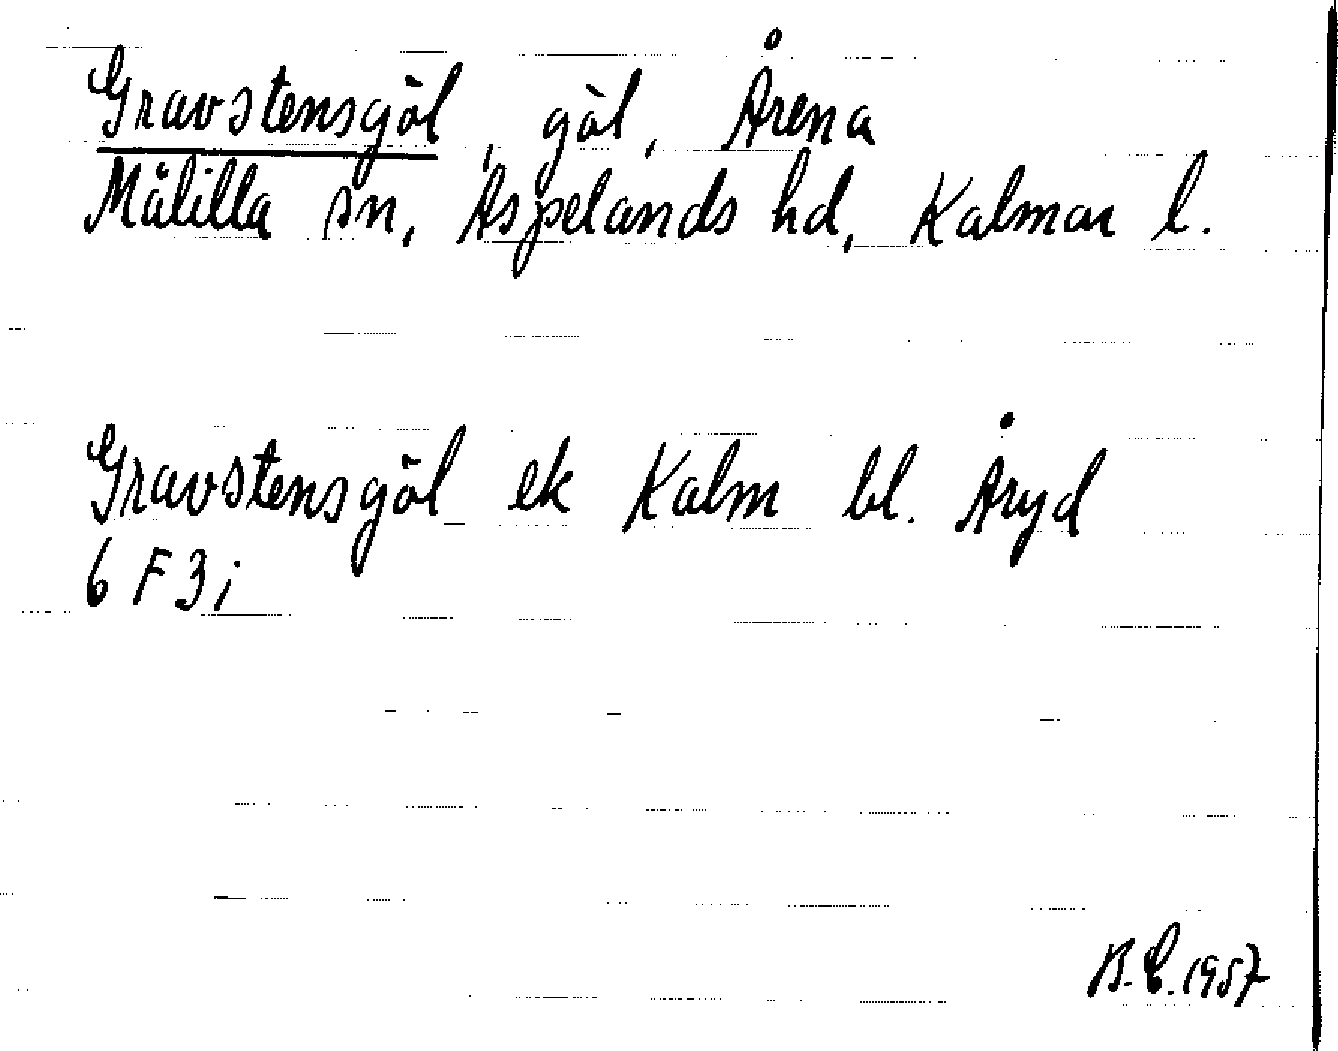 Gravstensgöl, göl, Årena
Målilla sn, Aspelands hd, Kalmar l.
Gravstensgöl ek Kalm bl. Åryd
6 F 3 i
B.E. 1957